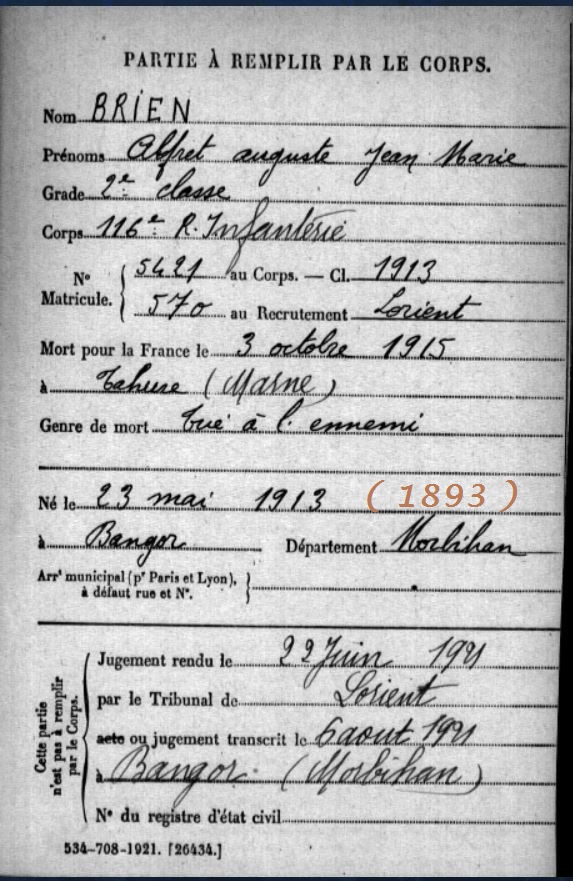 PARTIE À REMPLIR PAR LE CORPS.
Nom BRIEN
Prénoms Alfret auguste Jean Marie
Grade 2e classe
Corps 116e R. Infanterie
No Matricule. { 5421 au Corps. — Cl. 1913
570 au Recrutement Lorient
Mort pour la France le 3 octobre 1915
à Tahure (Marne)
Genre de mort tué à l'ennemi
Né le 23 mai 1913 (1893)
à Bangor Département Morbihan
Arrt municipal (pr Paris et Lyon), à défaut rue et No. }
Cette partie n'est pas à remplir par le Corps.
Jugement rendu le 22 Juin 1921
par le Tribunal de Lorient
acte ou jugement transcrit le 6 aout 1921
à Bangor (Morbihan)
No du registre d'état civil
534-708-1921. [26434.]